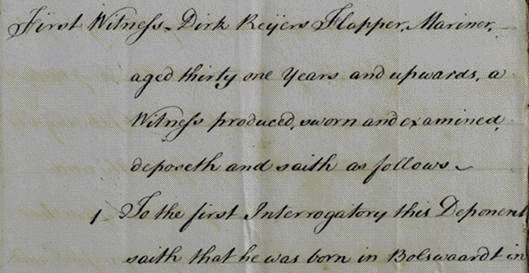 First Witness. Dirk Reijers Flapper, Mariner,
aged thirty one Years and upwards, a
Witness produced, sworn and examined,
deposeth and saith as follows
1 To the first Interrogatory this Deponent
saith that he was born in Bolswaardt in